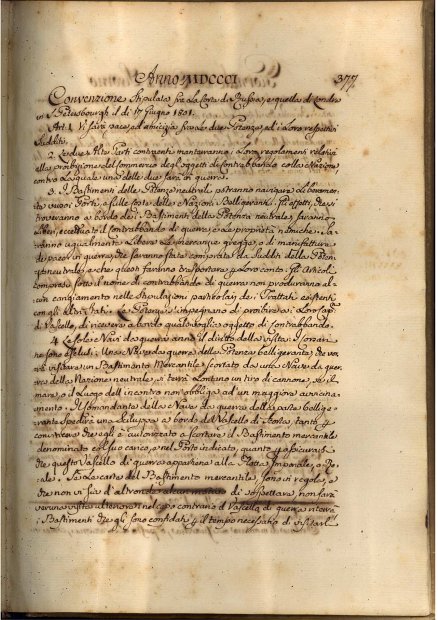 Anno MDCCCI 377.
Convenzione Stipulata fra la Corte di Russia, e quella di Londra
in S. Petersbourgh il dì 17 Giugno 1801.
Art. 1. Vi sarà pace, ed amicizia fra le due Potenze, ed i Loro respettivi
Sudditi.
2. Le due Alte Parti contraenti manterranno i Loro regolamenti relativi
alla proibizione del commercio degli oggetti di contrabbando colle Nazioni,
contro le quali una delle due sarà in guerra.
3. I Bastimenti delle Potenze neutrali potranno navigare liberamente
Porti, e sulle coste delle Nazioni Belligeranti. Gli effetti, che si
troveranno a bordo dei Bastimenti della Potenza neutrale, saranno
liberi, eccettuato il contrabbando di guerra, e le proprietà nemiche. Sa-
ranno ugualmente libere le mercanzie gregge, o di manifattura
de' paesi in guerra, che saranno state comprate da' Sudditi della Poten-
za neutrale, e che questi faranno trasportare a Loro conto. Gli Articoli
compresi sotto il nome di contrabbando di guerra non produrranno al-
cun cangiamento nelle Stipulazioni particolari de' Trattati esistenti
con gli altri Stati. Le Potenze s'impegnano di proibire a' Loro Cap.
di Vascello, di ricevere a bordo qualsivoglia oggetto di contrabbando.
4. Le sole Navi da guerra avranno il diritto della visita: I Corsari
ne sono esclusi. Una Nave da guerra della Potenza belligerante, che vor-
rà visitare un Bastimento Mercantile scortato da una Nave da guer-
ra della Nazione neutrale, si terrà lontano un tiro di cannone, se il
mare, o il luogo dell'incontro non obbliga ad un maggiore avvicina-
mento. Il Comandante della Nave da guerra della parte bellige-
rante spedirà una Scialuppa a bordo del Vascello di scorta, tanto per
convincersi che egli è autorizzato a scortare il Bastimento mercantile
denominato col suo carico, nel Porto indicato, quanto per assicurarsi
che questo Vascello di guerra appartiene alla Flotta Imperiale, o Re-
ale. Se le carte del Bastimento mercantile sono in regola, e
che non vi sia d'altronde alcun motivo di sospettare, non farà
veruna visita ulteriore: nel caso contrario il Vascello di guerra riterrà
i Bastimenti che gli sono confidati per il tempo necessario di visitarl